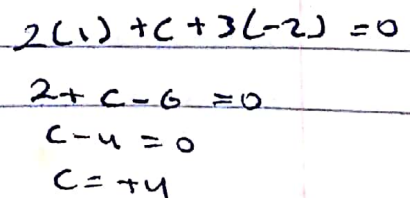 2(1) + C + 3(-2) = 0
2 + C - 6 = 0
C - 4 = 0
C = +4